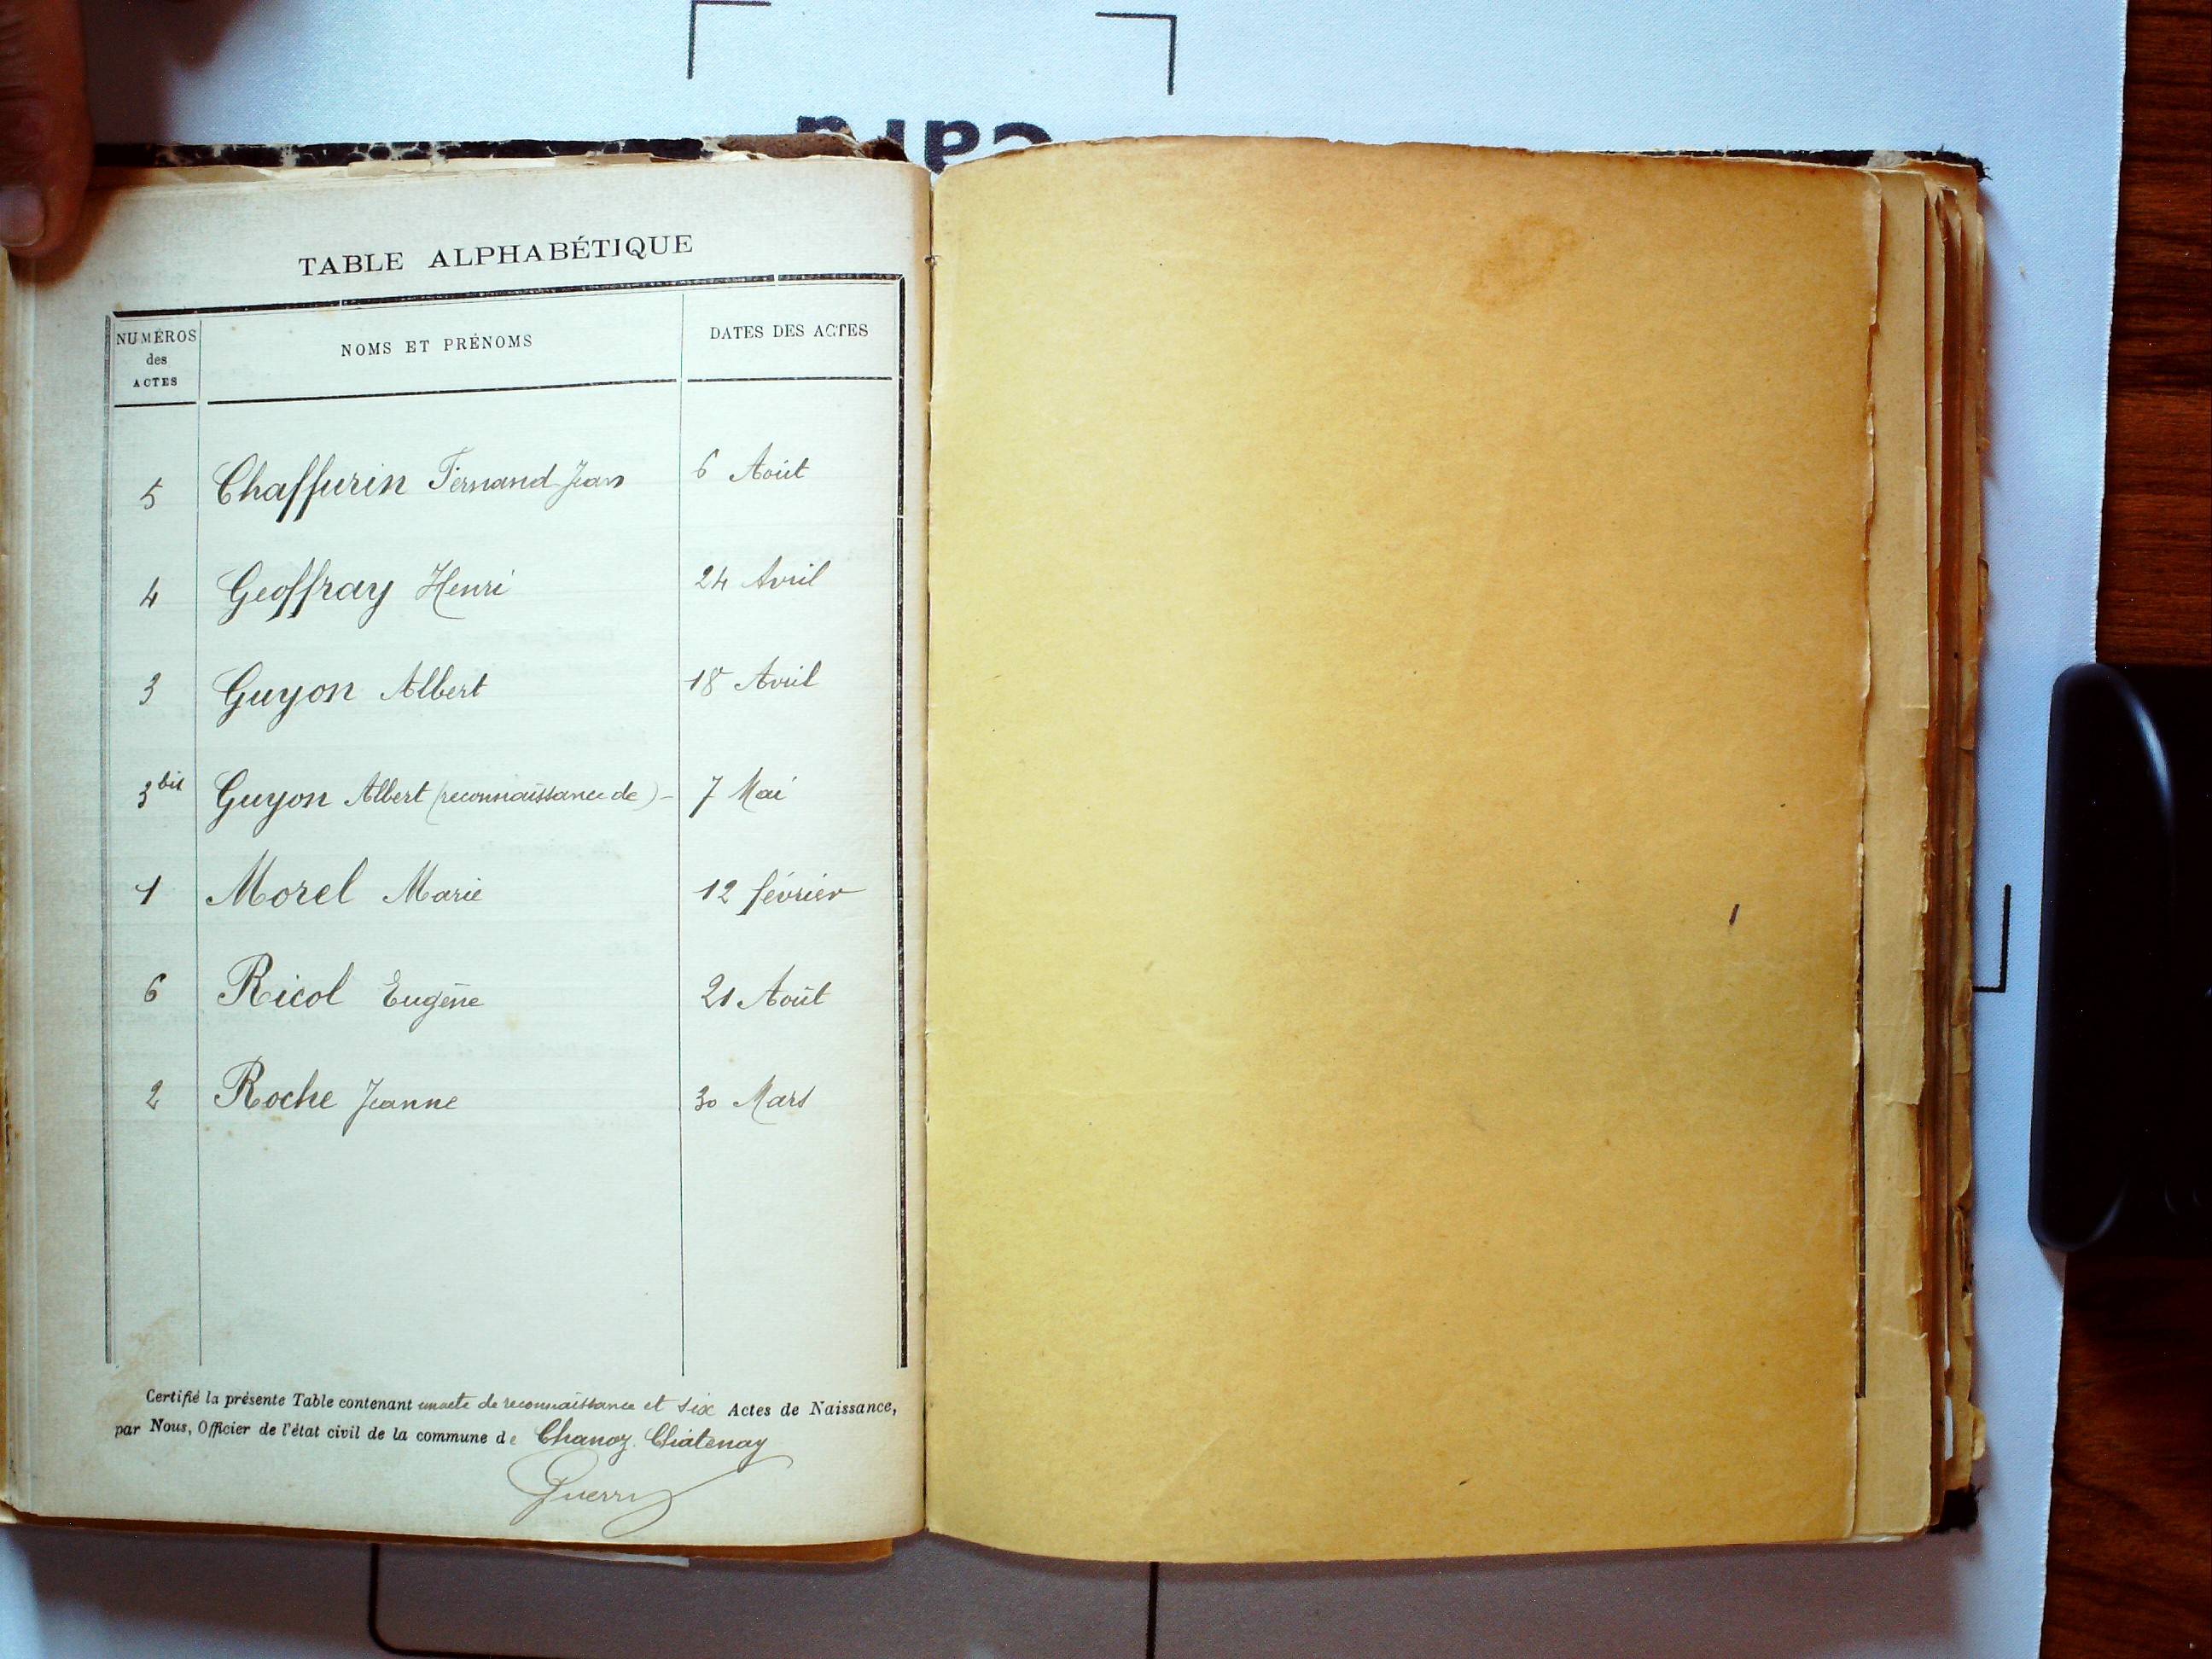 card
TABLE ALPHABÉTIQUE
NUMÉROS des ACTES NOMS ET PRÉNOMS DATES DES ACTES
5 Chaffurin Fernand Jean 6 Août
4 Geoffray Henri 24 Avril
3 Guyon Albert 18 Avril
3 bis Guyon Albert (reconnaissance de) - 7 Mai
1 Morel Marie 12 février
6 Ricol Eugène 21 Août
2 Roche Jeanne 30 Mars
Certifié la présente Table contenant un acte de reconnaissance et six Actes de Naissance,
par Nous, Officier de l'état civil de la commune de Chanoz Châtenay